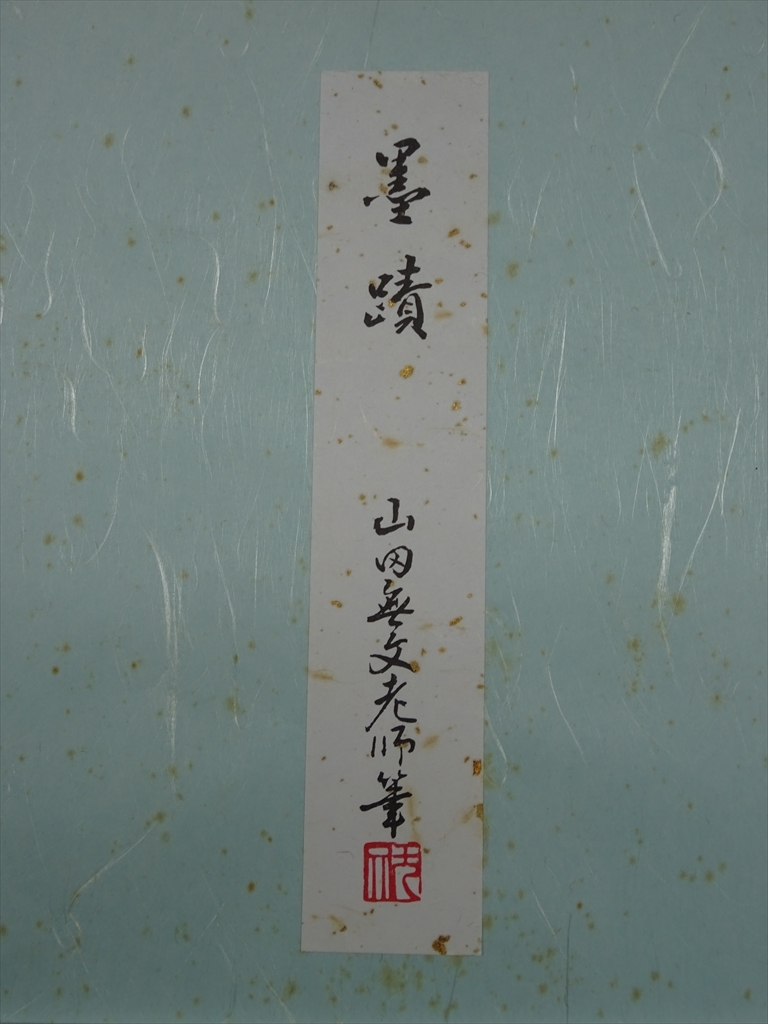 墨蹟
山田無文老師筆